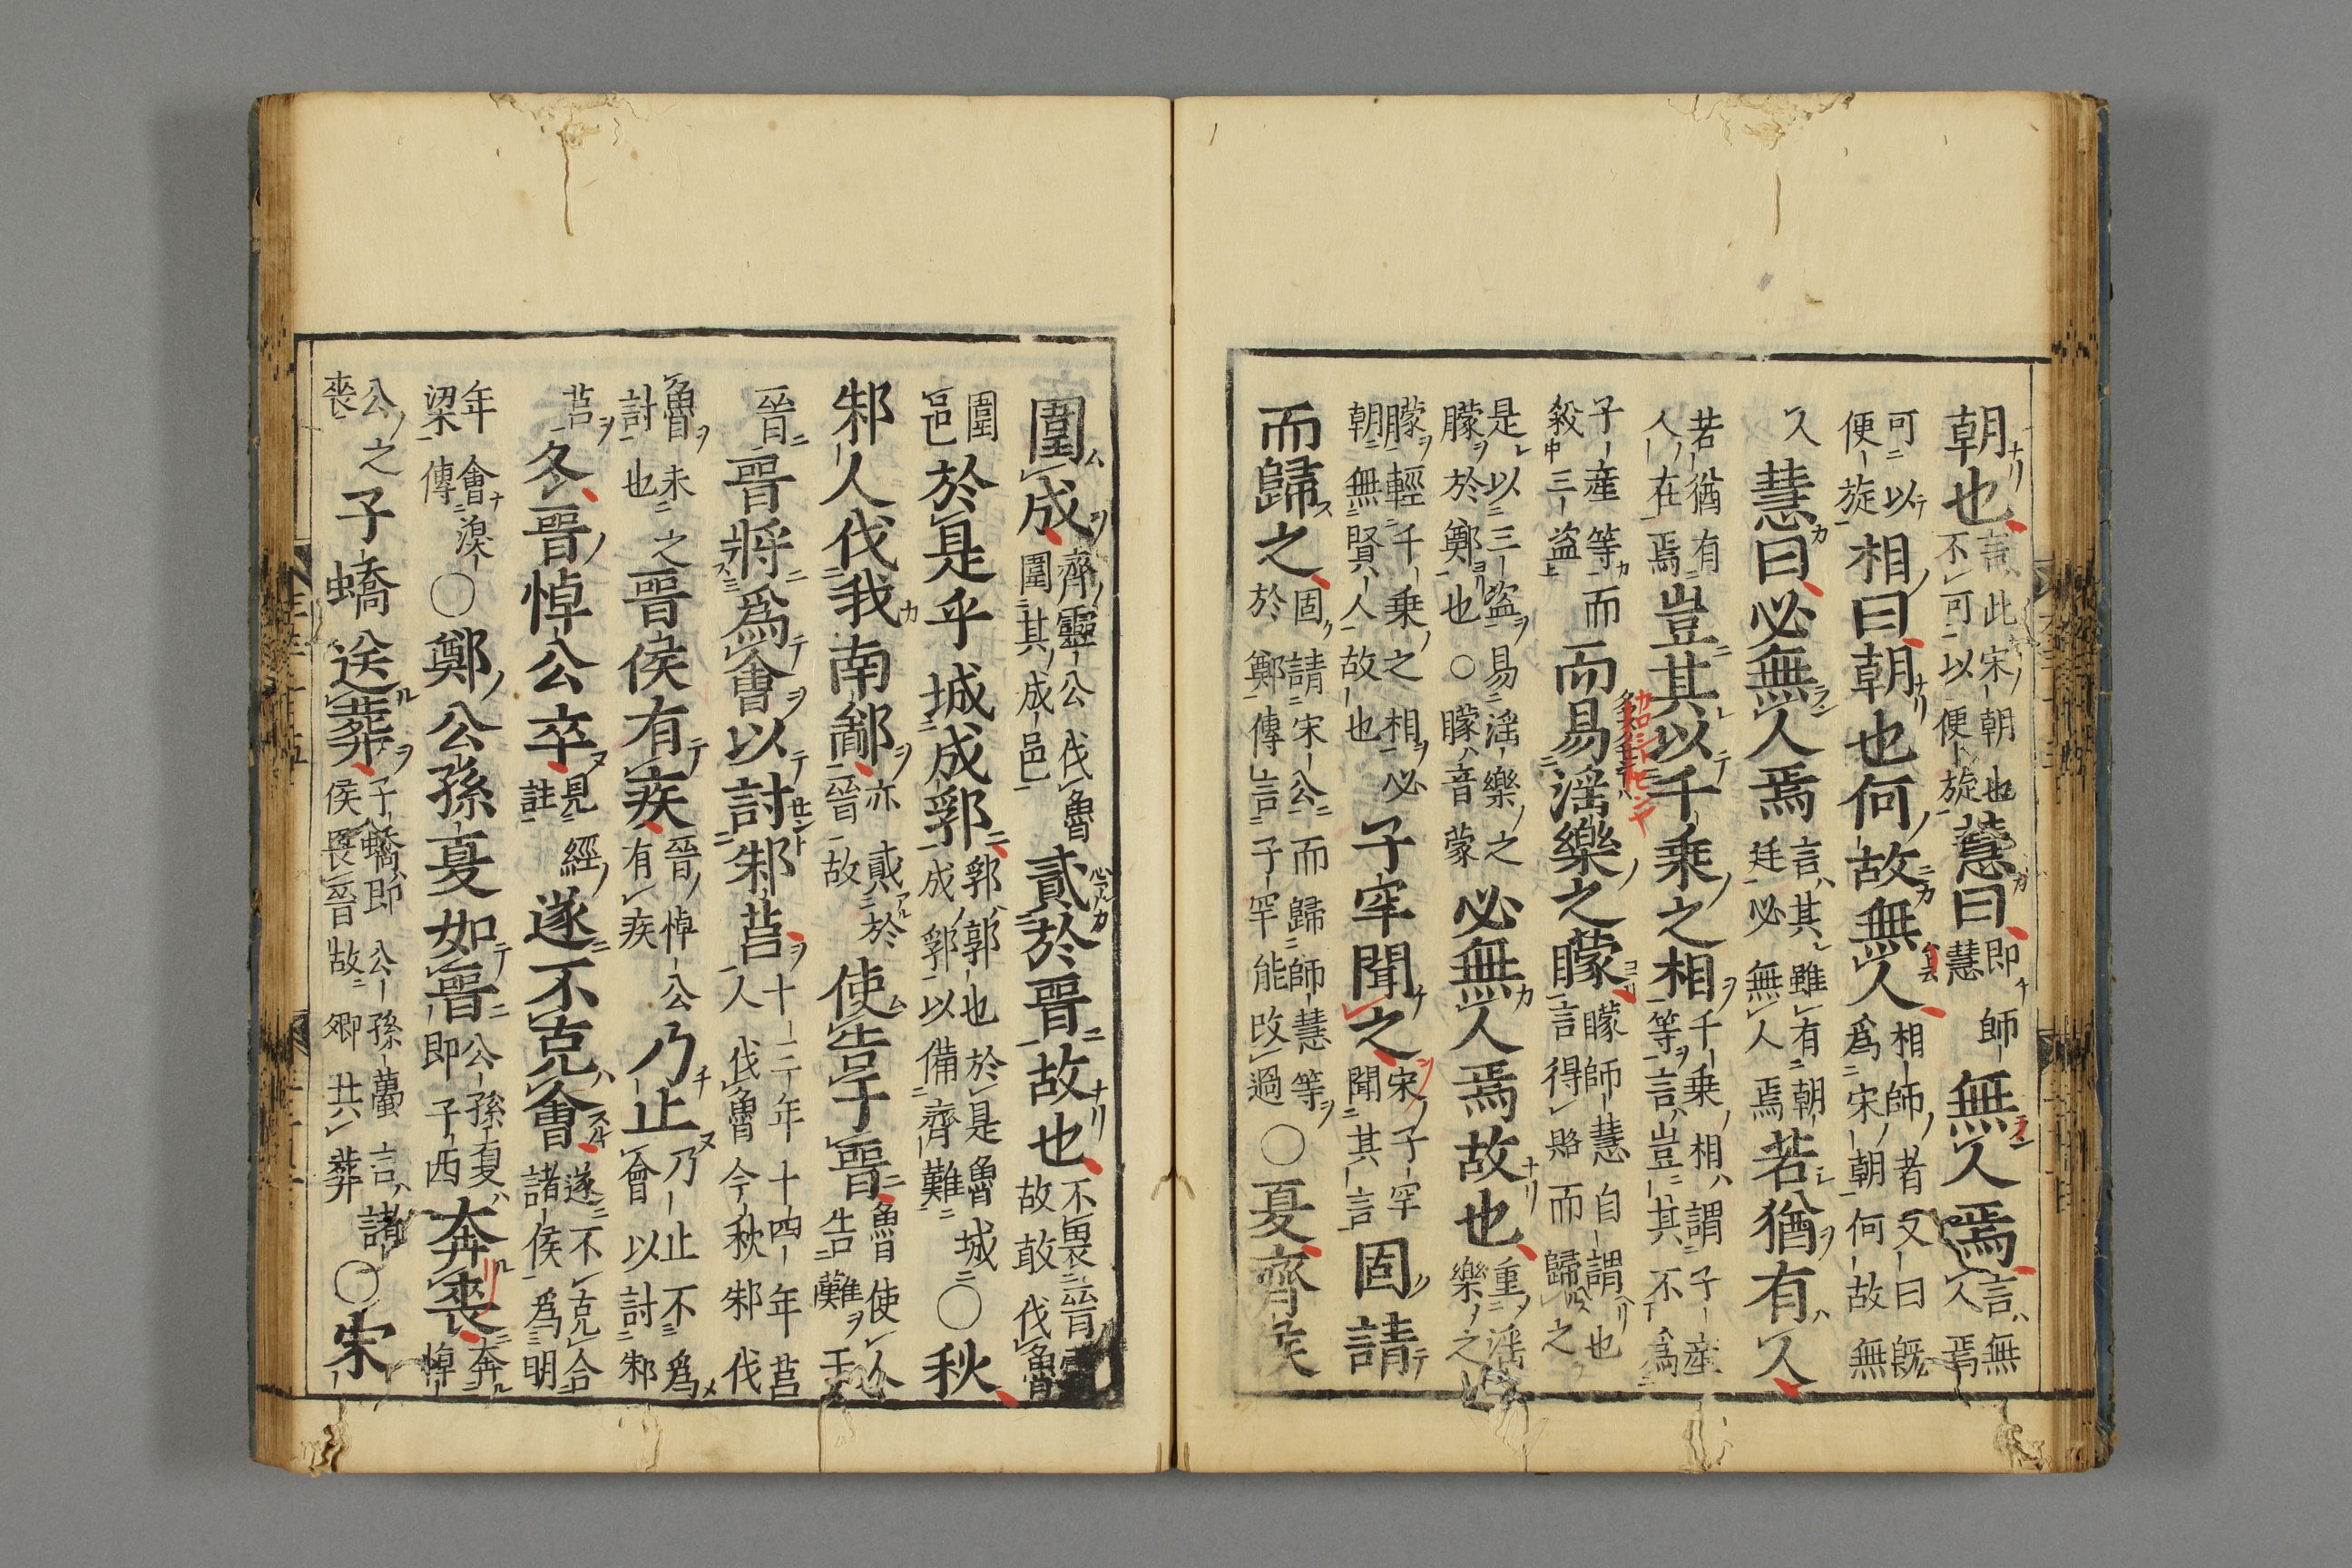 朝也言此宋朝也
不可以便旋慧曰即師
慧無人焉言無
人焉
可以
便旋相曰朝也何故無人相師者又曰既
爲宋朝何故無
人慧曰必無人焉言其雖有朝
廷必無人焉若猶有人
若猶有
人在焉豈其以千乗之相千乗相謂子産
等言豈其不爲
子産等而
殺三盗而易淫樂之矇矇師慧自謂也
言得賂而歸之
是以三盗易淫樂之
矇於鄭也○矇音蒙必無人焉故也重淫
樂之
矇輕千乗之相必
朝無賢人故也子罕聞之宋子罕
聞其言固請
而歸之固請宋公而歸師慧等
於鄭傳言子罕能改過○夏齊侯
圍成齊靈公伐魯
圍其成邑貳於晉故也不畏晉
故敢伐魯
圍
邑於是乎城成郛郛郭也於是魯城
成郛以備齊難○秋
邾人伐我南鄙亦貳於
晉故使告于晉魯使人
告難于
晉晉將爲會以討邾莒十二年十四年莒
人伐魯今秋邾伐
魯未之
討也晉侯有疾晉悼公
有疾乃止乃止不爲
會以討邾
莒冬晉悼公卒見經
註遂不克會遂不克合
諸侯爲明
年會湨
梁傳○鄭公孫夏如晉公孫夏
即子西奔喪奔
悼
公之
喪子蟜送葬子蟜即公孫蠆言諸
侯畏晉故卿共葬○宋